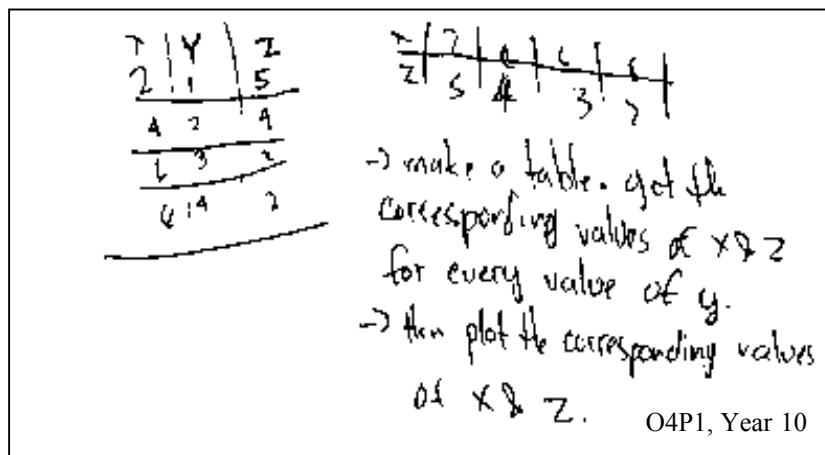 x | Y | Z
2 | 1 | 5
4 2 4
6 3
4 2
x | 2 | | 6 |
z | 5 | 4 | 3 | 2
-> make a table. get the
corresponding values of x & z
for every value of y.
-> then plot the corresponding values
of x & z.
O4P1, Year 10